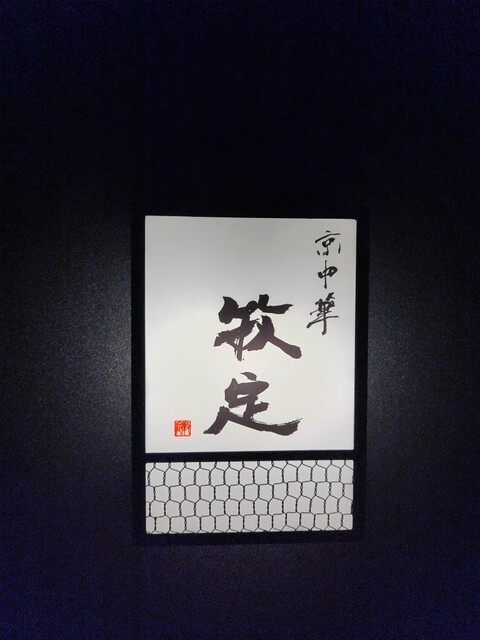 京中華
牧定